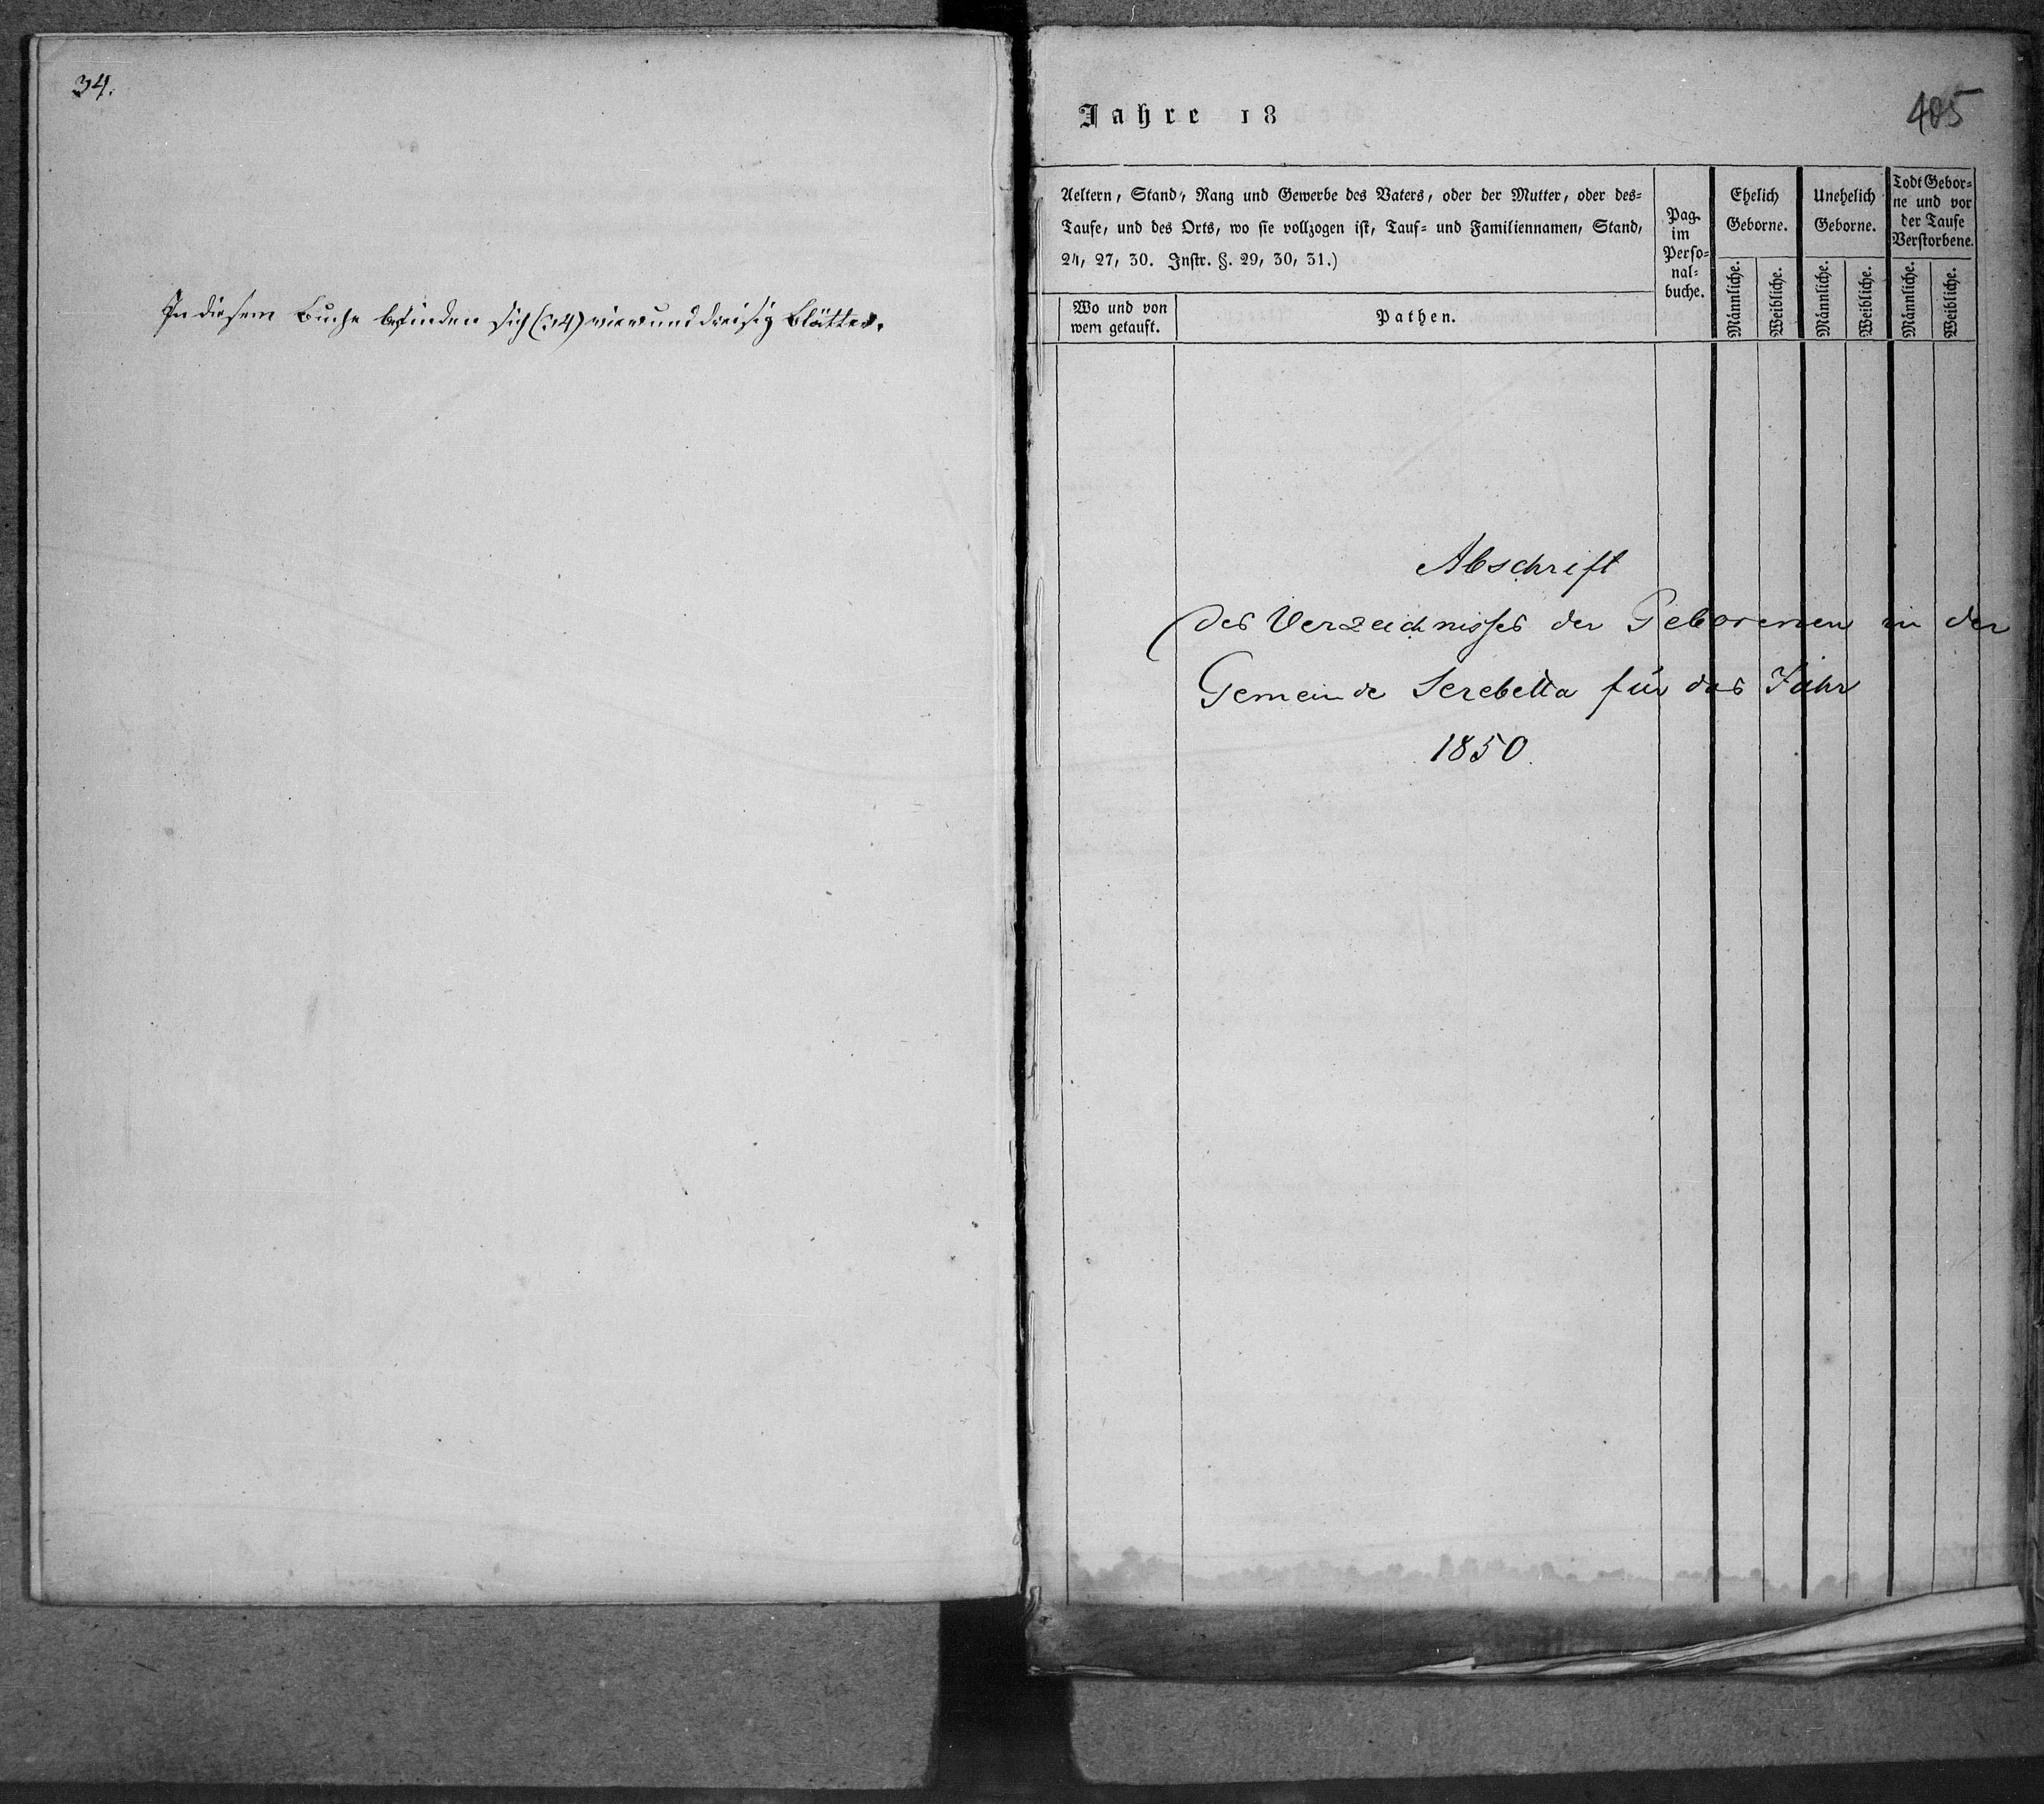 34.
In diesem Buche befinden sich (34) vierunddreisig Blätter.
Jahre 18
405
Aeltern, Stand, Rang und Gewerbe des Vaters, oder der Mutter, oder des-
Taufe, und des Orts, wo sie vollzogen ist, Tauf- und Familiennamen, Stand,
24, 27, 30. Instr. §. 29, 30, 31.)
Wo und von
wem getauft.
Pathen.
Pag.
im
Perso-
nal-
buche.
Ehelich
Geborne.
Männliche.
Weibliche.
Unehelich
Geborne.
Männliche.
Weibliche.
Todt Gebor-
ne und vor
der Taufe
Verstorbene.
Männliche.
Weibliche.
Abschrift
des Verzeichnisses der Geborenen in der
Gemeinde Serebetta für das Jahr
1850.